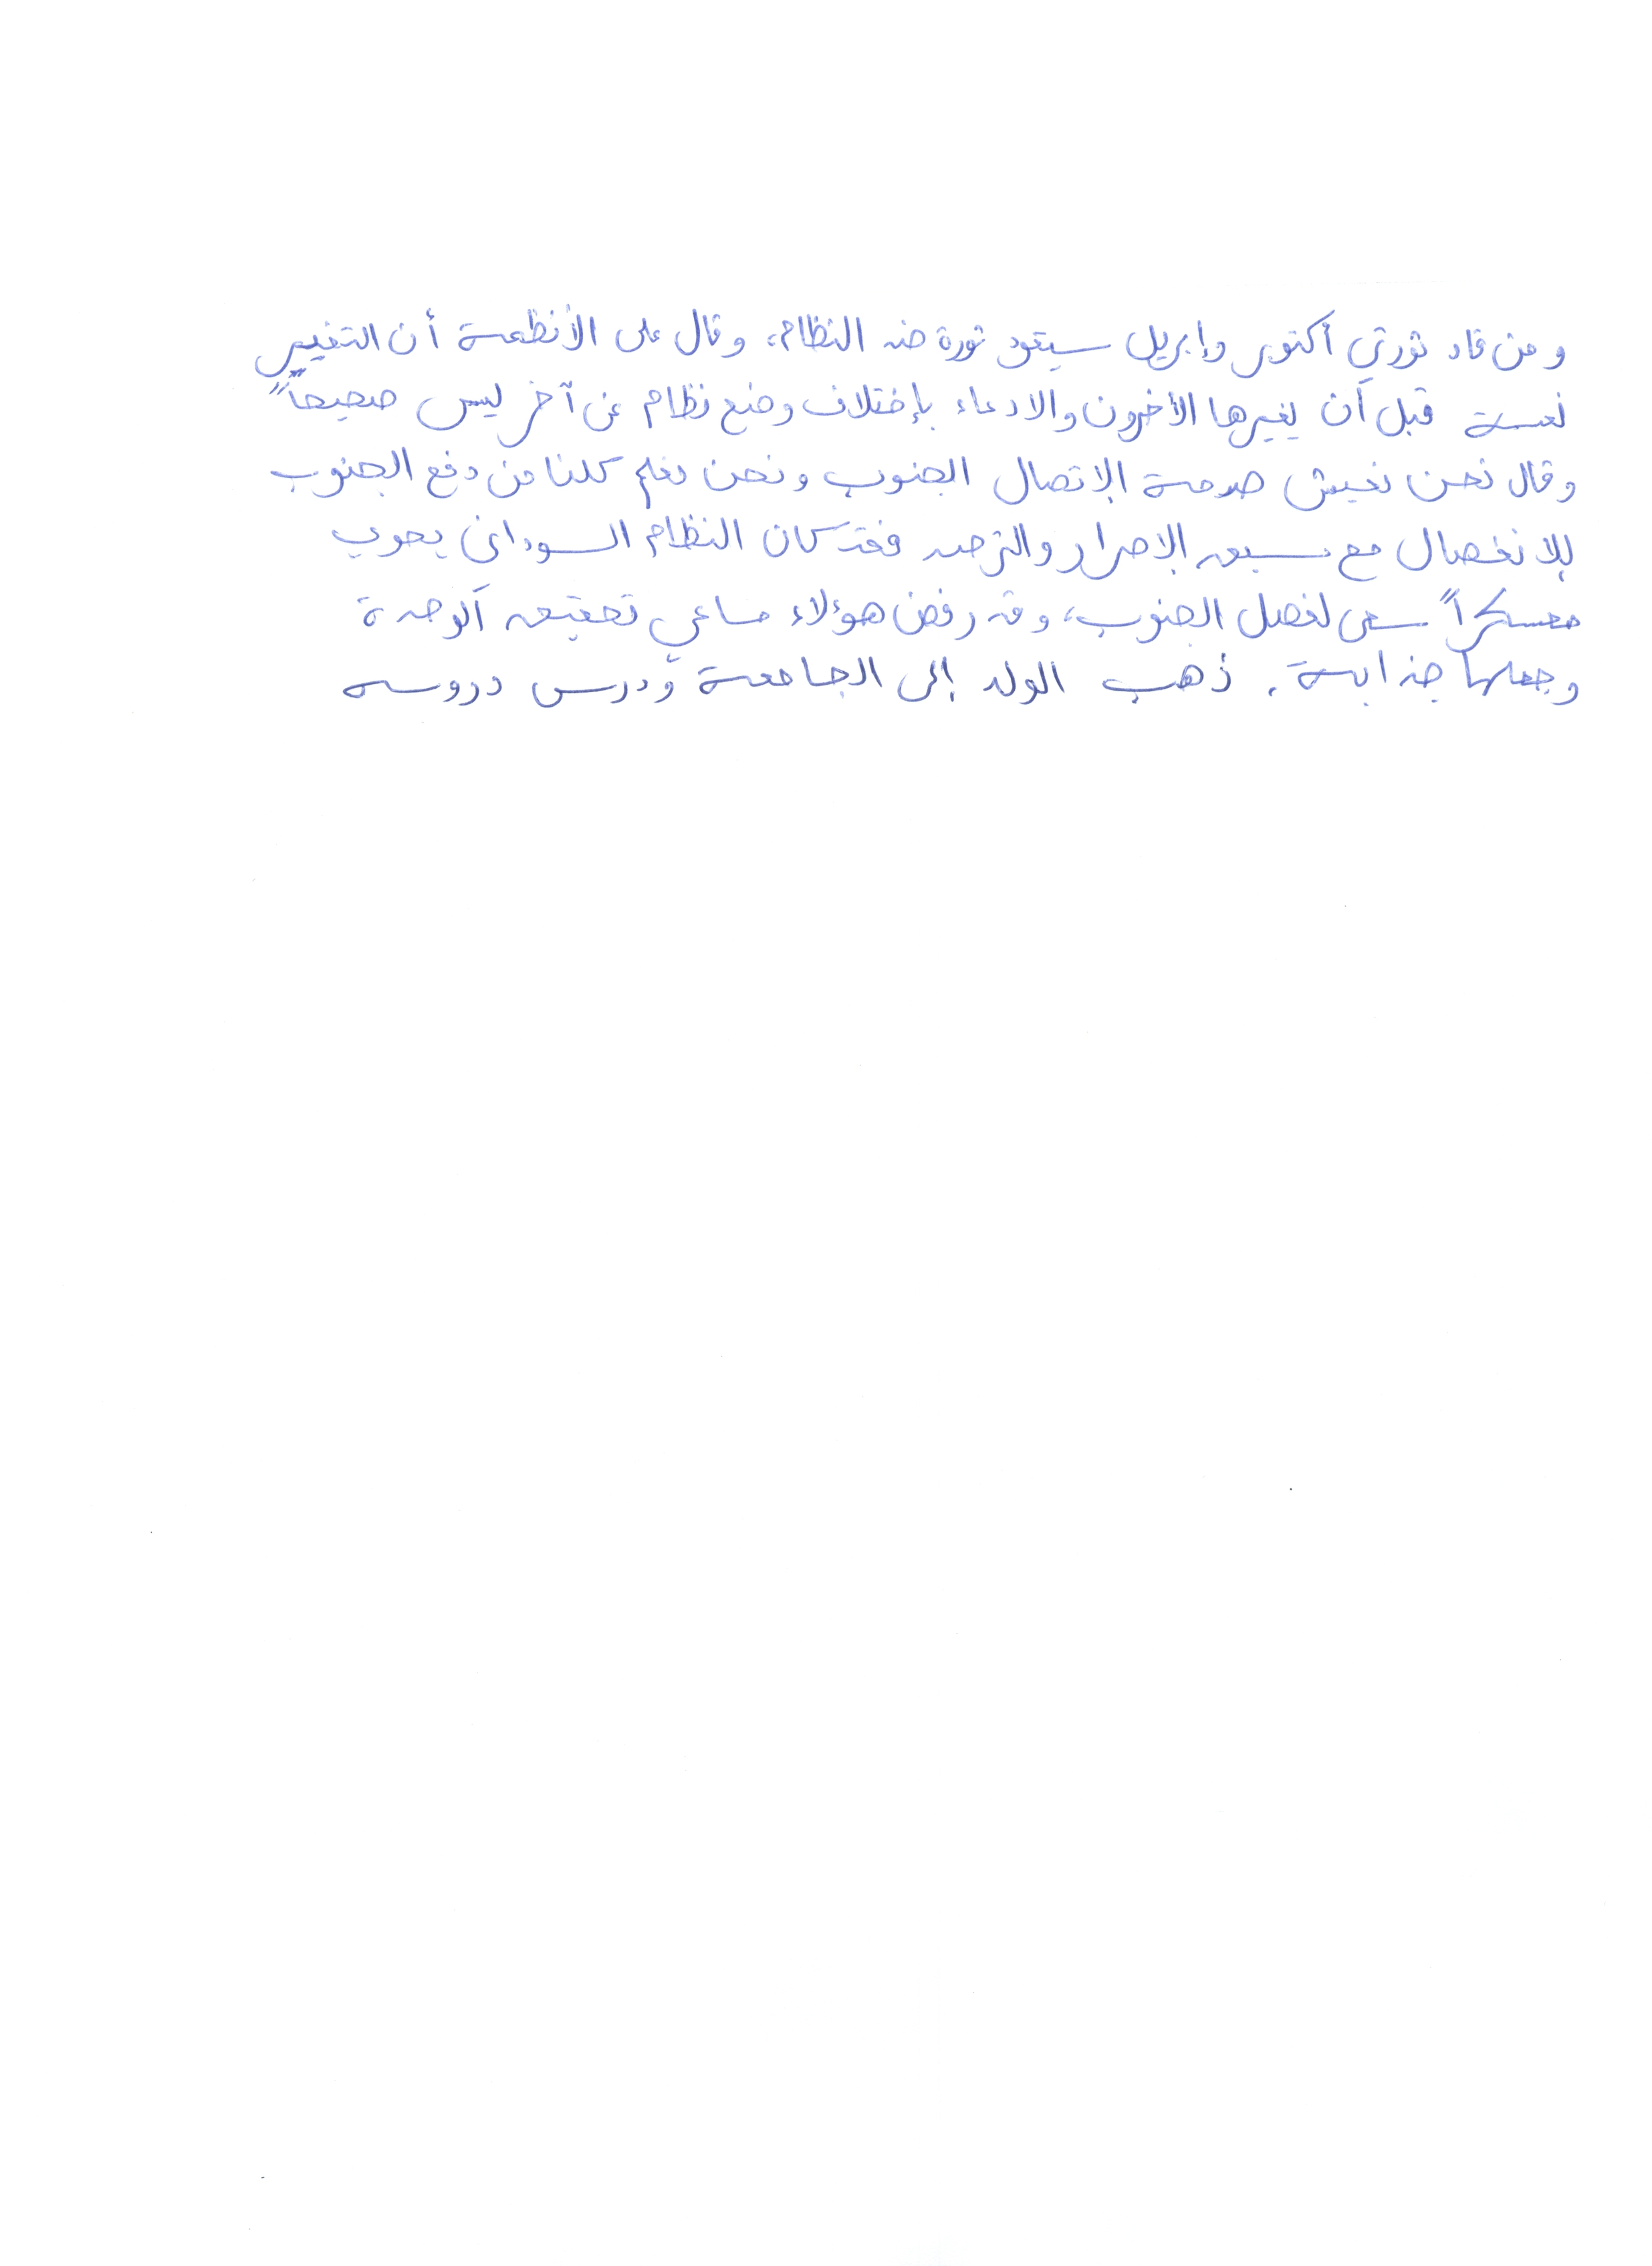 ومن قاد ثورتي أكتوبر وإبريل سيقود ثورة ضد النظام، وقال على الأنظمة أن التغيير
نفسة قبل أن يغيرها الأخرون والادعاء بإختلاف وضع نظام عن آخر ليس صحيحاً
وقال نحن نعيش صدمة الإتصال الجنوب ونحن نعلم كلنا من دفع الجنوب
للانفصال مع سبق الإصرار والترصد فقد كان النظام السوداني يحوي
معسكراً سعى لفصل الجنوب، وقد رفض هؤلاء مساعي تحقيق الوحدة
وجعلها جذابة. ذهب الولد إلى الجامعة ودرس دروسه